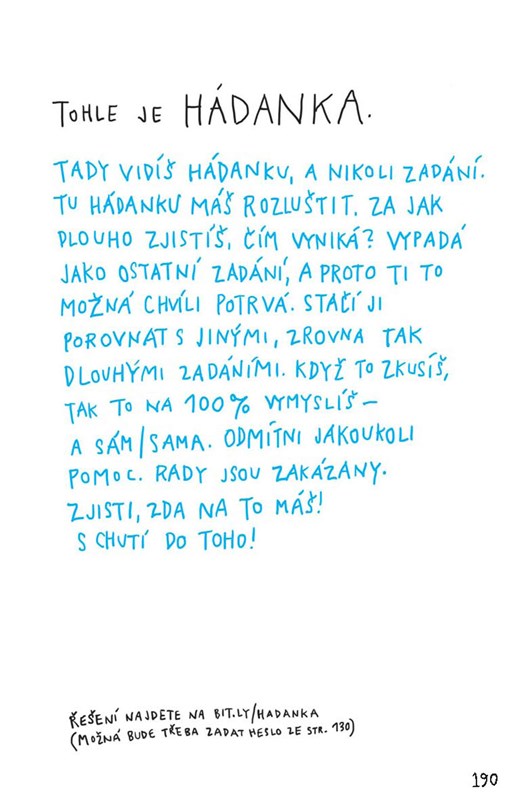 TOHLE JE HÁDANKA.
TADY VIDÍŠ HÁDANKU, A NIKOLI ZADÁNÍ.
TU HÁDANKU MÁŠ ROZLUŠTIT. ZA JAK
DLOUHO ZJISTÍŠ, ČÍM VYNIKÁ? VYPADÁ
JAKO OSTATNÍ ZADÁNÍ, A PROTO TI TO
MOŽNÁ CHVÍLI POTRVÁ. STAČÍ JI
POROVNAT S JINÝMI, ZROVNA TAK
DLOUHÝMI ZADÁNÍMI. KDYŽ TO ZKUSÍŠ,
TAK TO NA 100% VYMYSLÍŠ –
A SÁM/SAMA. ODMÍTNI JAKOUKOLI
POMOC. RADY JSOU ZAKÁZANY.
ZJISTI, ZDA NA TO MÁŠ!
S CHUTÍ DO TOHO!
ŘEŠENÍ NAJDETE NA BIT.LY/HADANKA
(MOŽNÁ BUDE TŘEBA ZADAT HESLO ZE STR. 130)
190